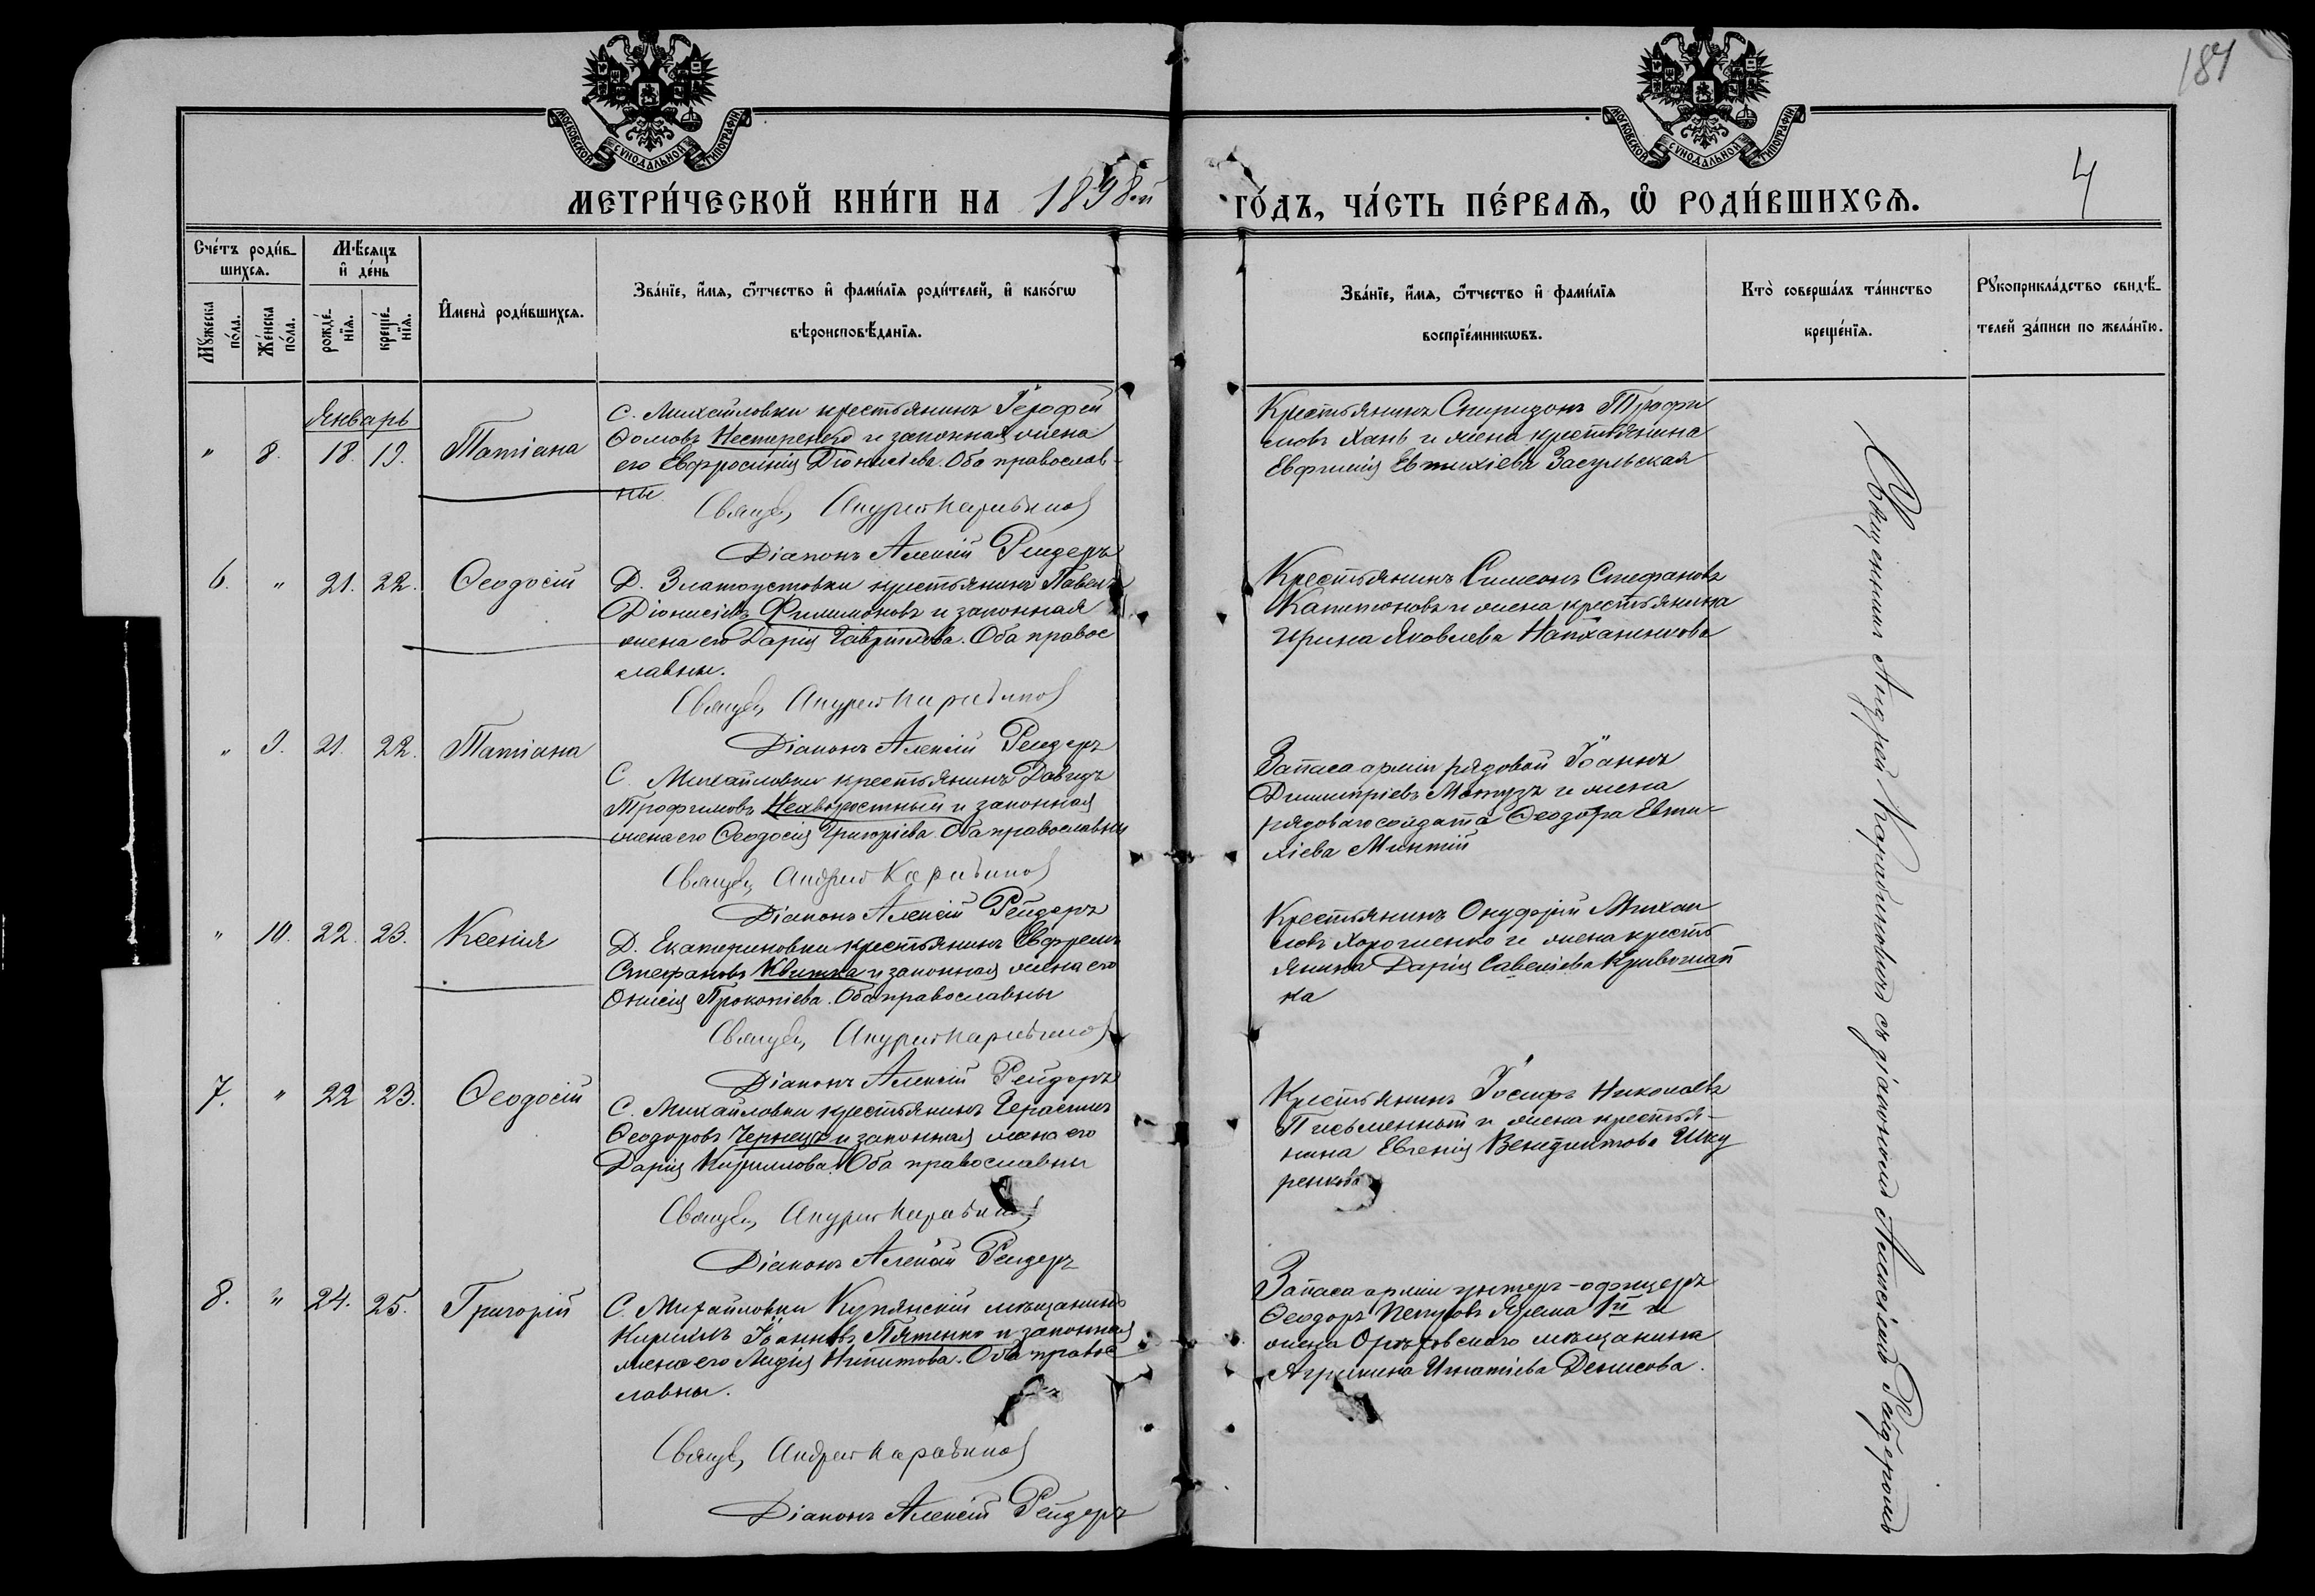 184
МОСКОВСКОЙ СѴНОДАЛЬНОЙ ТИПОГРАФІИ
МОСКОВСКОЙ СѴНОДАЛЬНОЙ ТИПОГРАФІИ
МЕТРИ́ЧЕСКОЙ КНИ́ГИ НА 1898ой
ГО́ДЪ, ЧА́СТЬ ПЕ́РВАѦ, Ѡ РОДИ́ВШИХСѦ.
4
Сче́тъ роди́в-
шихсѧ.
Мꙋ́жеска
по́ла.
Же́нска
по́ла.
Мѣ́сѧцъ
и҆ де́нь
рожде́-
нїѧ.
креще́-
нїѧ.
И҆мена̀ роди́вшихсѧ.
Зва́нїе, и҆́мѧ, ѻ҆́тчество и҆ фами́лїѧ роди́телей, и҆ како́гѡ
вѣроисповѣ́данїѧ.
Зва́нїе, и҆́мѧ, ѻ҆́тчество и҆ фами́лїѧ
воспрїе́мникѡвъ.
Кто̀ соверша́лъ та́инство
креще́нїѧ.
Рꙋкоприкла́дство свидѣ́-
телей за́писи по жела́нїю.
Январь
" 8. 18. 19. Татіана
С. Михайловки крестьянинъ Герофей
Ѳомовъ Нестеренко и законная жена
его Евфросинія Діонисіева. Оба православ-
ны.
Священ. Андрей Карабинов
Діаконъ Алексій Рейдеръ
Крестьянинъ Спиридонъ Трофи
мовъ Хань и жена крестьянина
Евфимія Евтихіева Засульская
6. " 21. 22. Ѳеодосій
Д. Златоустовки крестьянинъ Павелъ
Діонисіевъ Филимоновъ и законная
жена его Дарія Гавриілова. Оба правос
славны.
Священ. Андрей Карабинов
Діаконъ Алексій Рейдеръ
Крестьянинъ Симеонъ Стефановъ
Капитоновъ и жена крестьянина
Ирина Яковлева
" 9. 21. 22. Татіана
С. Михайловки крестьянинъ Давидъ
Трофимовъ Нехворостный и законная
жена его Ѳеодосія Григоріева. Оба православны
Священ. Андрей Карабинов
Діаконъ Алексій Рейдеръ
Запаса арміи рядовой Іоаннъ
Димитріевъ Мотузъ и жена
рядоваго солдата Ѳеодора Евти-
хіева
" 10. 22. 23. Ксенія
Д. Екатериновки крестьянинъ Ефремъ
Стефановъ Квитка и законная жена его
Онисія Прокопіева. Оба православны
Священ. Андрей Карабинов
Діаконъ Алексій Рейдеръ
Крестьянинъ Онуфрій Михаи
ловъ Хорошенко и жена кресть
янина Дарія Савеліева Кривошап
ка
7. " 22 23. Ѳеодосій
С. Михайловки крестьянинъ Герасимъ
Ѳеодоровъ Чернецъ и законная жена его
Дарія Кириллова. Оба православны
Священ. Андрей Карабинов
Діаконъ Алексій Рейдеръ
Крестьянинъ Іосифъ Николаевъ
Письменный и жена крестья-
нина Евгенія Венедиктова Шку
ренкова
8. " 24. 25. Григорій
С. Михайловки Купянскій мѣщанинъ
Кириллъ Іоанновъ Пятенко и законная
жена его Лидія Никитова. Оба право
славны.
Священ. Андрей Карабинов
Діаконъ Алексій Рейдеръ
Запаса арміи унтеръ-офицеръ
Ѳеодоръ Петровъ Ярема 1й и
жена Орѣховскаго мѣщанина
Агрипина Игнатіева Денисова.
Священникъ Андрей Карабиновъ съ діакономъ Алексіемъ Рейдеромъ